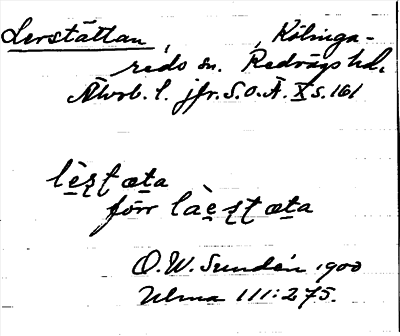 Lerstättan, , Kölinga-
reds sn. Redvägs hd.
Älvsb. l. jfr. S.O.Ä. X s. 161
lèʂʈæta
förr làeʂʈæta
O.W. Sundén 1900
Ulma 111:275.